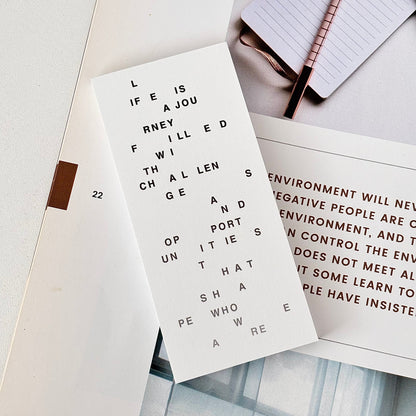 L
IF E IS
A JOU
RNEY
F ILL E D
WI
TH
CHALLEN
GE S
A
AND
PORT
OP
UN I T IE S
T HAT
S H A
PE WHO
W
A RE E
22
ENVIRONMENT WILL NEV
NEGATIVE PEOPLE ARE O
ENVIRONMENT, AND T
N CONTROL THE ENV
DOES NOT MEET AL
T SOME LEARN TO
PLE HAVE INSISTE